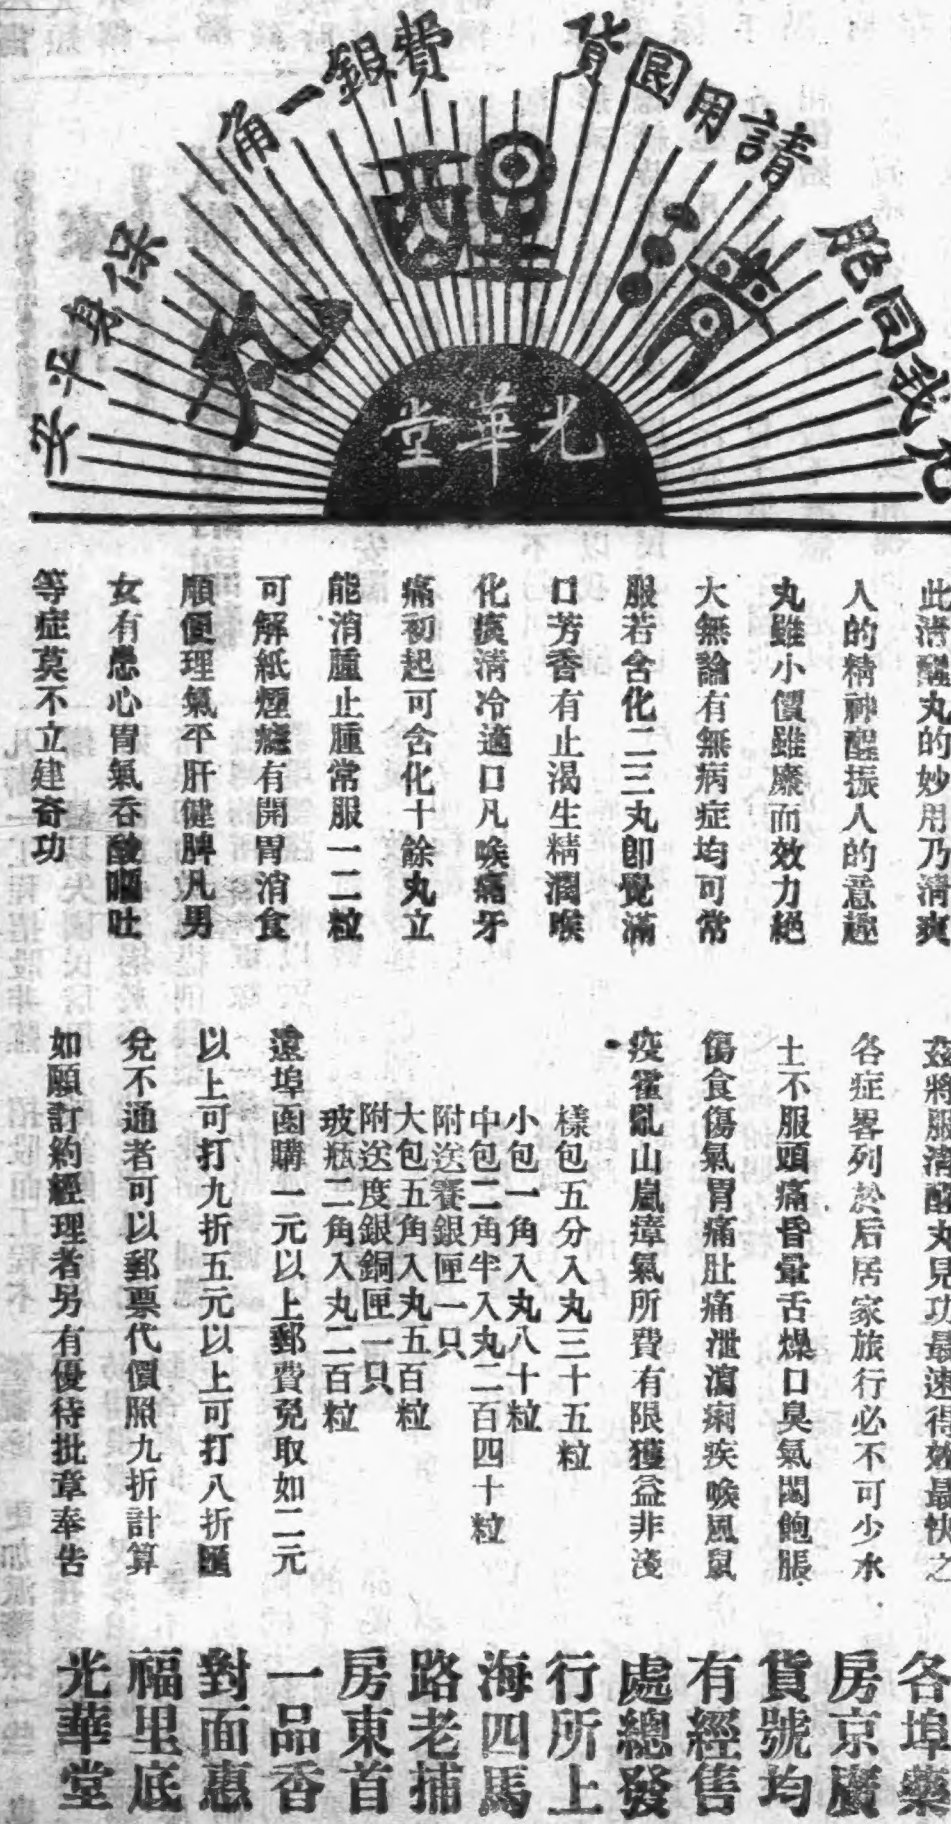 胞同我凡
貨國用請
費銀一角
保身平安
清醒丸
光華堂
此清醒丸的妙用乃清爽
人的精神醒振人的意趣
丸雖小價雖廉而效力絕
大無論有無病症均可常
服若含化二三丸卽覺滿
口芳香有止渴生精潤喉
化痰淸冷適口凡喉痛牙
痛初起可含化十餘丸立
能消腫止腫常服一二粒
可解紙煙癮有開胃消食
順便理氣平肝健脾凡男
女有患心胃氣吞酸嘔吐
等症莫不立建奇功
茲將服清醒丸見功最速得效最快之
各症畧列於后居家旅行必不可少水
土不服頭痛昏暈舌燥口臭氣悶飽脹
傷食傷氣胃痛肚痛泄瀉痢疾喉風鼠
疫霍亂山嵐瘴氣所費有限獲益非淺
樣包五分入丸三十五粒
小包一角入丸八十粒
中包二角半入丸二百四十粒
附送賽銀匣一只
大包五角入丸五百粒
附送度銀銅匣一只
玻瓶二角入丸二百粒
遠埠函購一元以上郵費免取如二元
以上可打九折五元以上可打八折匯
兌不通者可以郵票代價照九折計算
如願訂約經理者另有優待批章奉告
各埠藥
房京廣
貨號均
有經售
處總發
行所上
海四馬
路老捕
房東首
一品香
對面惠
福里底
光華堂